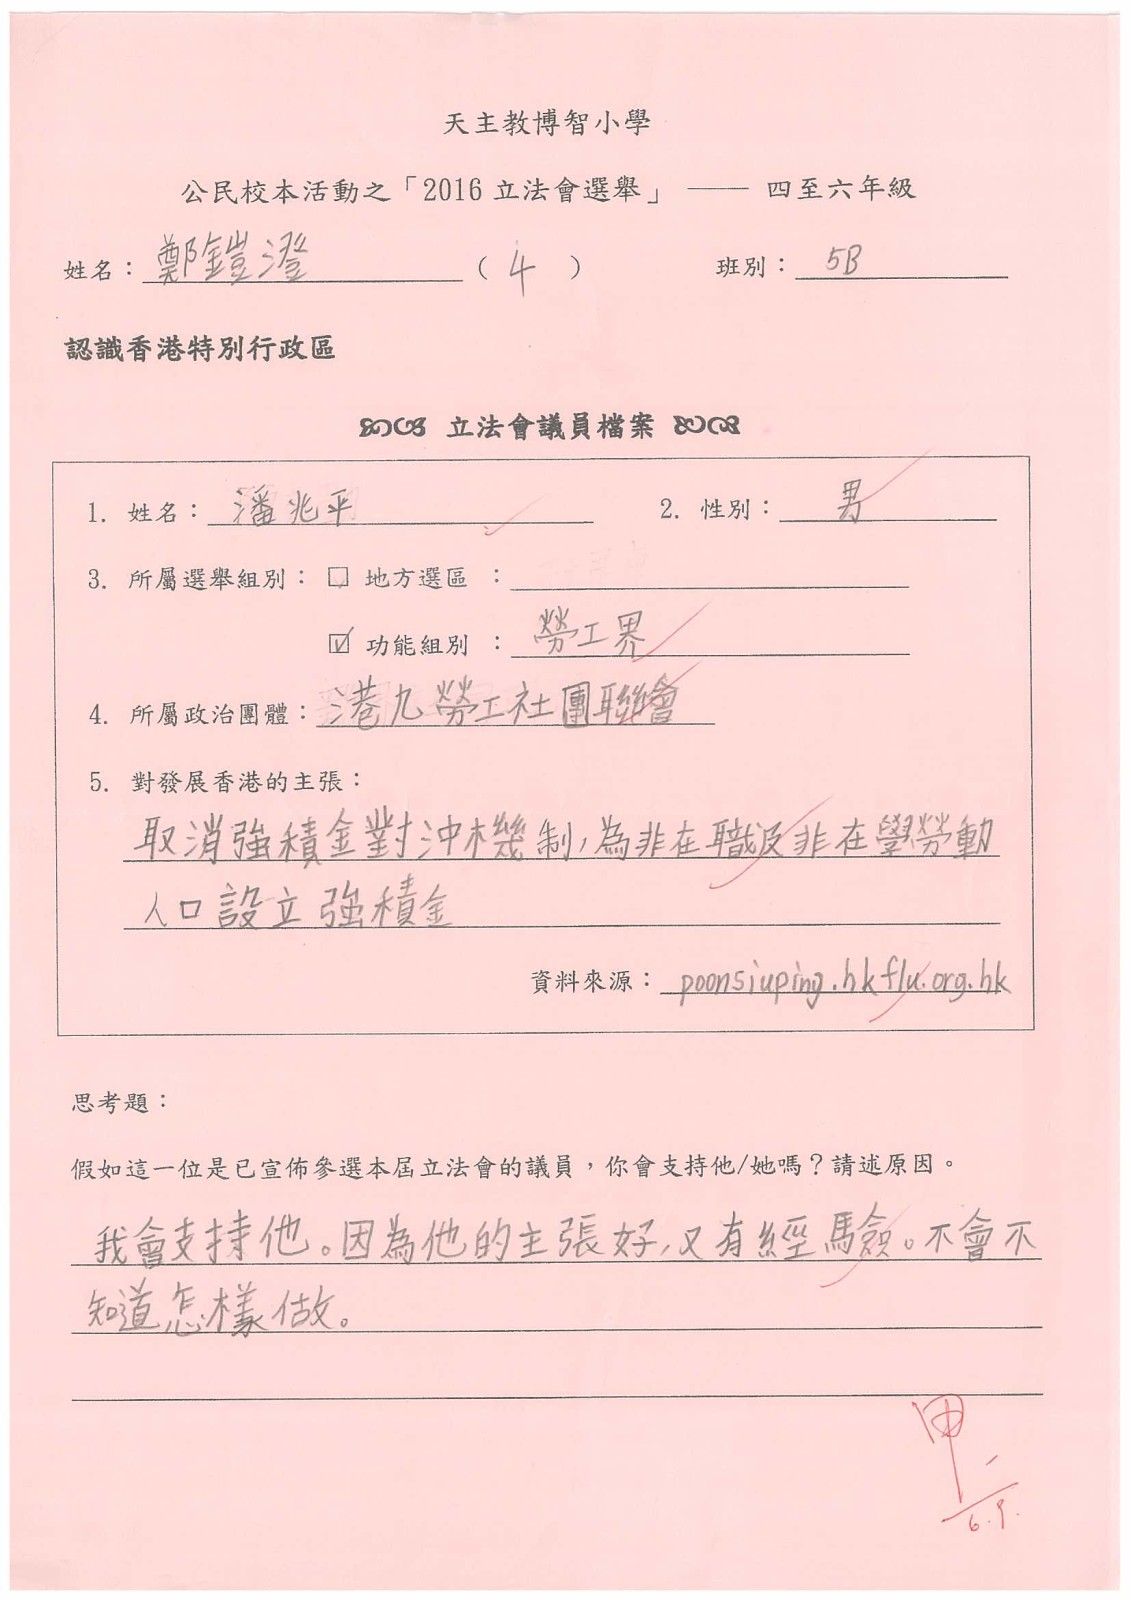 天主教博智小學
公民校本活動之「2016 立法會選舉」 —— 四至六年級
姓名：鄭鎧澄（4） 班別：5B
認識香港特別行政區
立法會議員檔案
1. 姓名：潘兆平 2. 性別：男
3. 所屬選舉組別：□ 地方選區 ：
☑ 功能組別 ：勞工界
4. 所屬政治團體：港九勞工社團聯會
5. 對發展香港的主張：
取消強積金對沖機制，為非在職及非在學勞動
人口設立強積金
資料來源：poonsiuping.hkflu.org.hk
思考題：
假如這一位是已宣佈參選本屆立法會的議員，你會支持他/她嗎？請述原因。
我會支持他。因為他的主張好，又有經驗。不會不
知道怎樣做。
甲-
6.9.